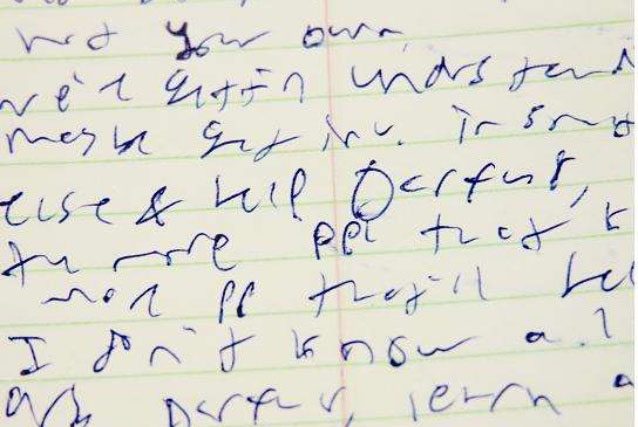 not your own
understand
maybe get inv. in smt
else & help Darfur,
the more ppl that k
more pp that'll hel
I don't know a.l
Darfur, learn a